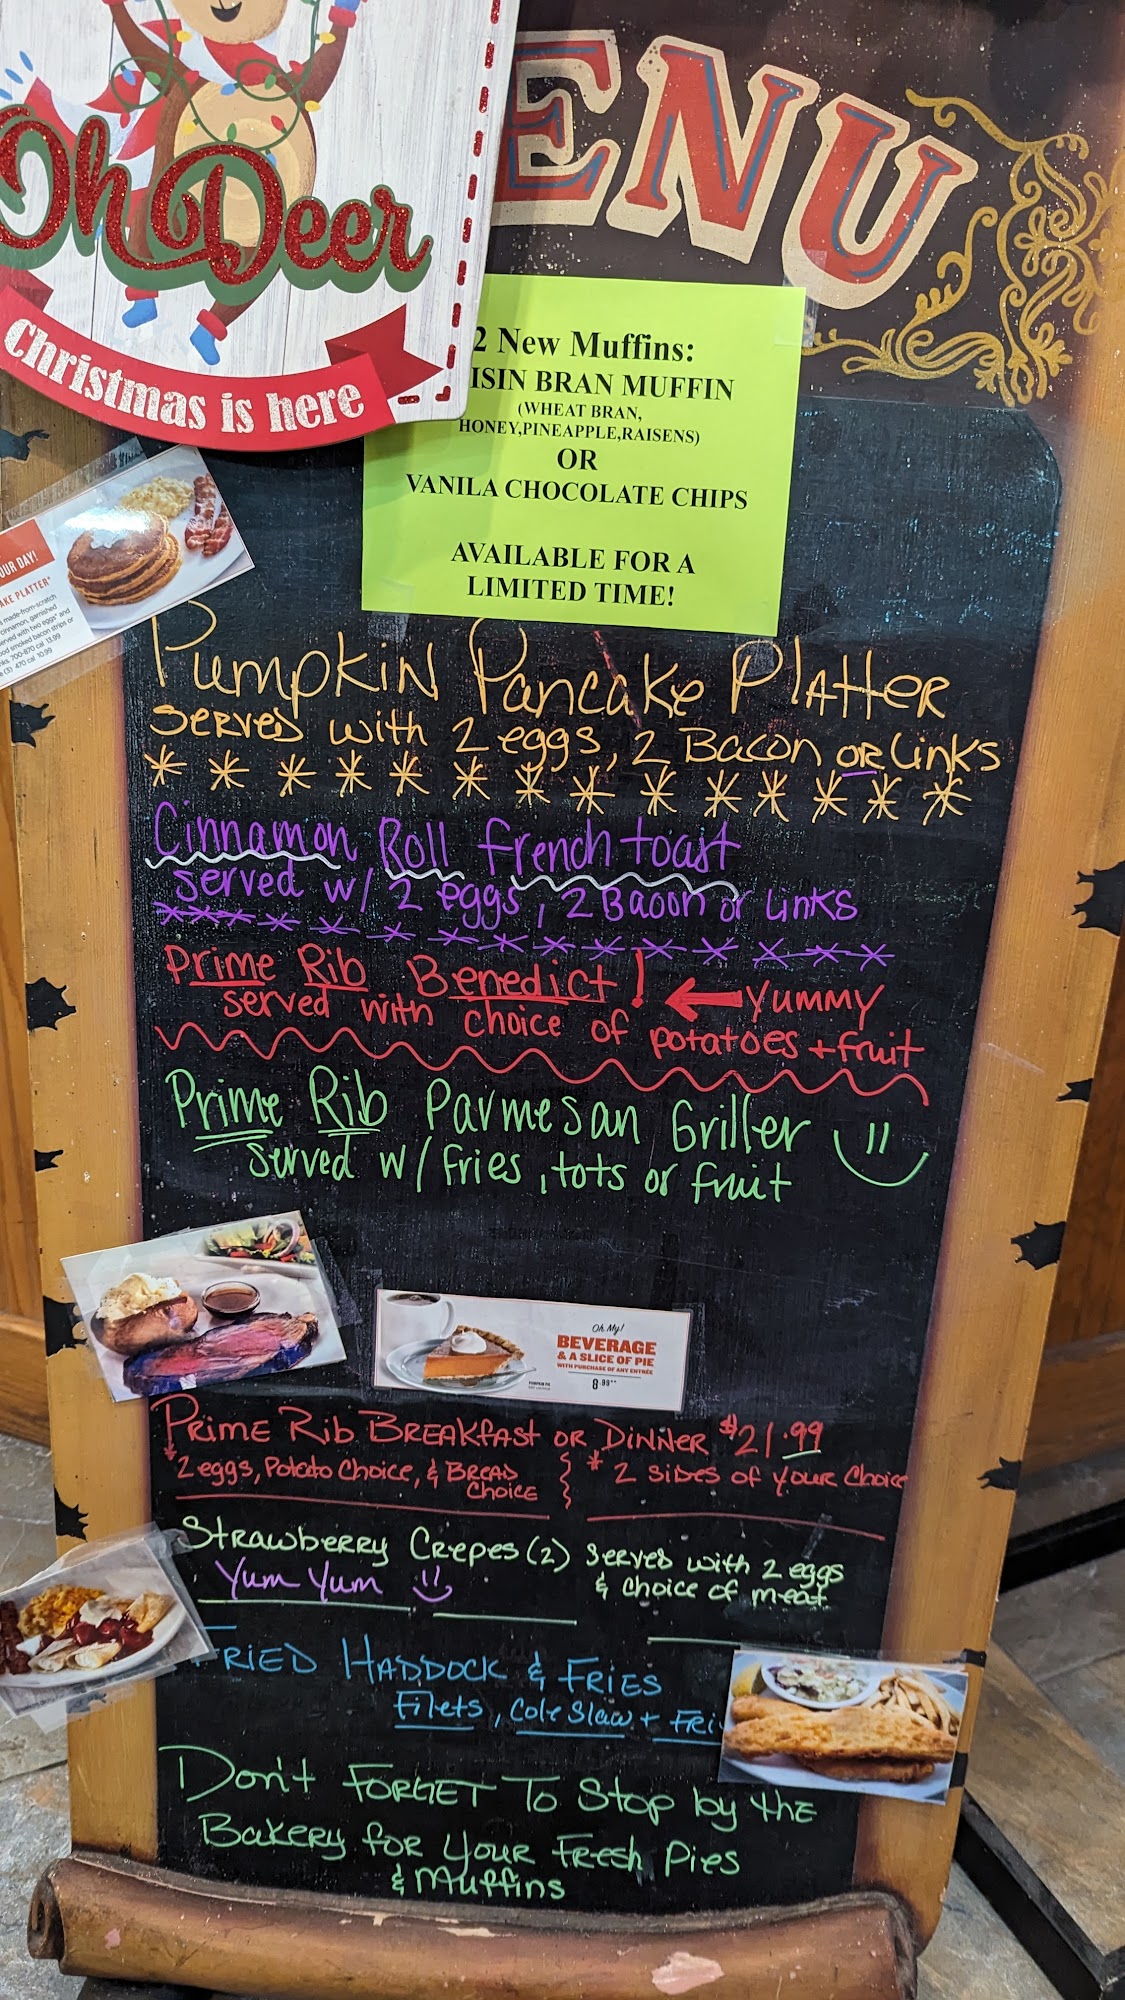 Oh Deer
Christmas is here
ENU
2 New Muffins:
ISIN BRAN MUFFIN
(WHEAT BRAN,
HONEY,PINEAPPLE,RAISENS)
OR
VANILA CHOCOLATE CHIPS
AVAILABLE FOR A
LIMITED TIME!
OUR DAY!
AKE PLATTER*
made-from-scratch
cinnamon, garnished
served with two eggs* and
ood smoked bacon strips or
nks. 700-870 cal 13.99
(3) 470 cal 10.99
Pumpkin Pancake Platter
served with 2 eggs, 2 Bacon or Links
Cinnamon Roll french toast
served w/ 2 eggs, 2 Bacon or Links
Prime Rib Benedict! ← Yummy
served with choice of potatoes + fruit
Prime Rib Parmesan Griller
served w/ fries, tots or fruit
Oh My!
BEVERAGE
& A SLICE OF PIE
WITH PURCHASE OF ANY ENTRÉE
8.99**
PUMPKIN PIE
Prime Rib Breakfast or Dinner $21.99
* 2 eggs, Potato Choice, & Bread Choice
* 2 sides of your Choice
Strawberry Crepes (2) served with 2 eggs
Yum Yum & choice of meat
Fried Haddock & Fries
Filets, Cole Slaw + Fri
Don't Forget To Stop by the
Bakery for your Fresh Pies
& Muffins